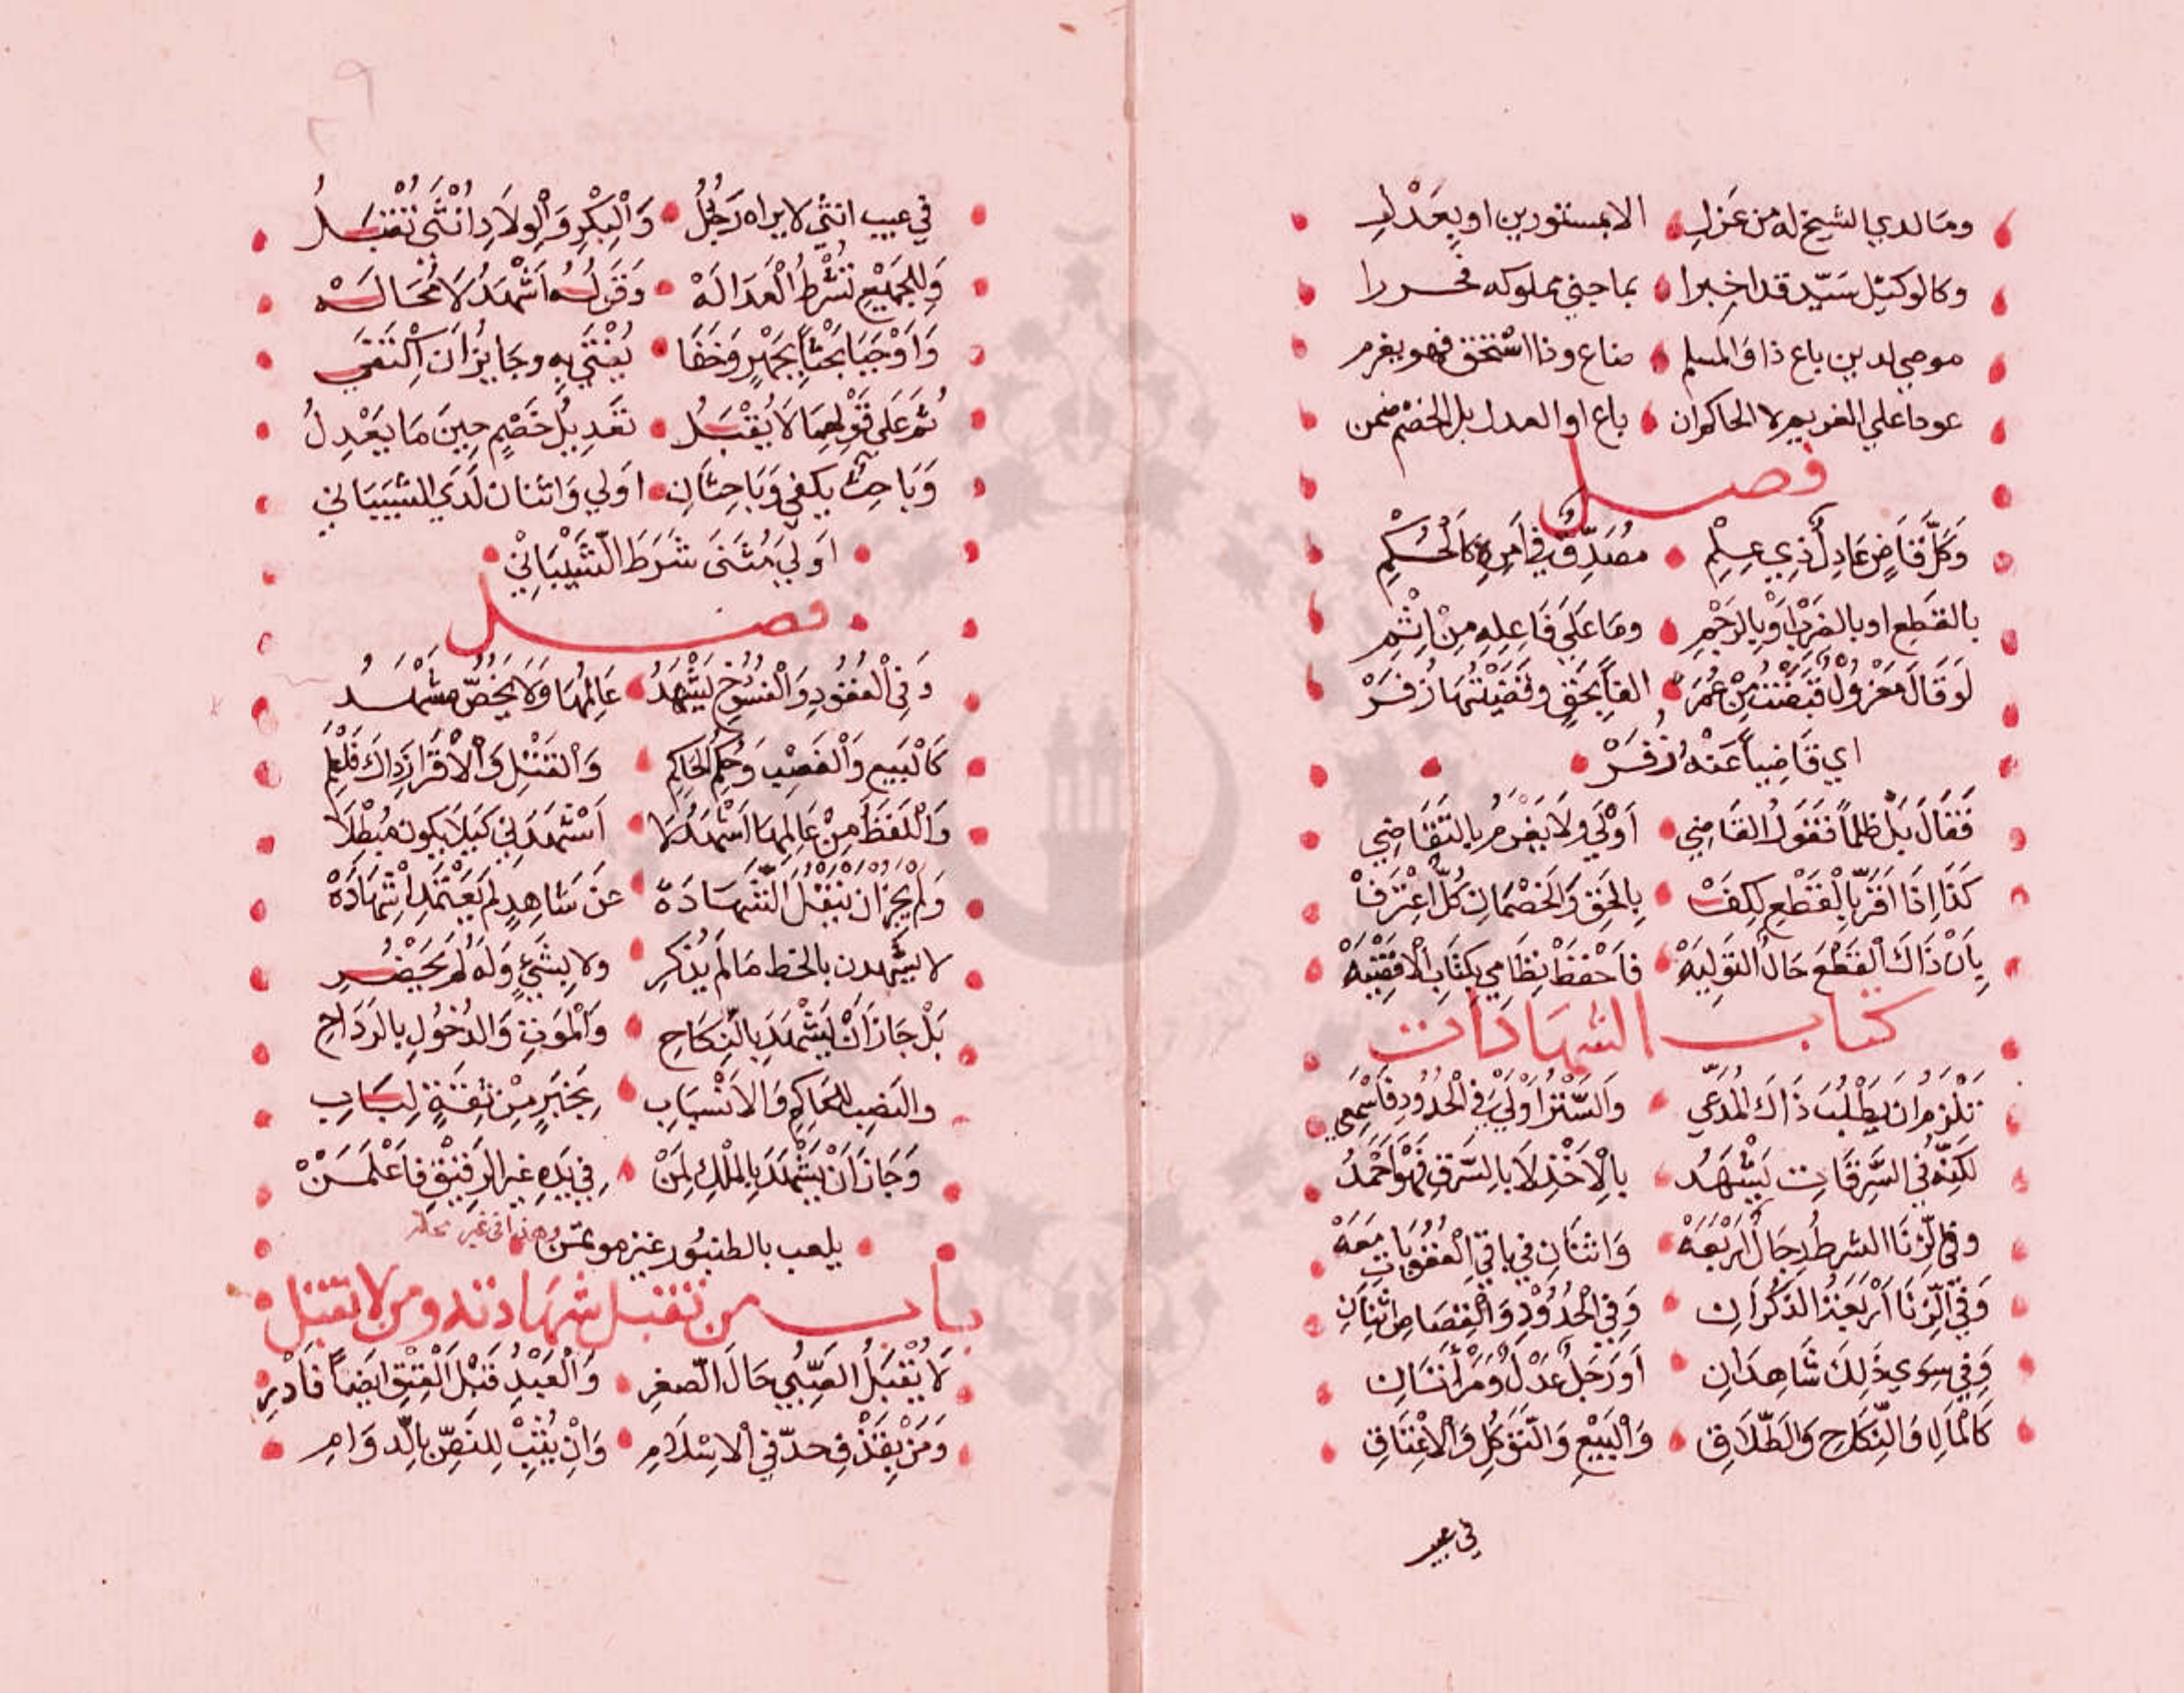 وما لدي الشيخ له من عزل الا بمستورين او بعدل
وكالوكيل سيد قد اخبرا بما جني مملوكه فحررا
موصي لدين باع ذا فالمسلم ضاع وذا استحق فهو يغرم
عودا علي الغريم لا الحاكم ان باع او العدل بل الخصم ضمن
فصل
وَكُلُّ قَاضٍ عَادِلٍ ذِي عِلْمِ مُصَدَّقٌ فِي اَمْرِهِ كَالْحُكْمِ
بالقطع او بالضرب اَوْ بِالرَّجْمِ وَمَا عَلَي فَاعِلِهِ مِنْ اِثْمِ
لَوْ قَالَ مَعْزُولٌ قَبَضْتُ مِنْ عُمَرْ الفاً بِحَقٍ وقَضَيْتُهَا زُفَرْ
اي قَاضِياً عَنْهُ زُفَرْ
فَقَالَ بَلْ ظلماً فَقَوْلُ القَاضِي اَوْلَي وَلَا يَغْرَمُ بِالتَّقَاضِي
كَذَا اِذَا اَقَرَّ بِالْقَطْعِ لِكَفْ بِالحَقِ وَالخَصْمَانِ كُلٌّ اعْتَرَفْ
بِاَنْ ذَاكَ الْقَطْعَ حَالَ التَوْلِيَهْ فَاحْفَظْ نِظَامِي بِكِتَابِ الْاقْضِيَهْ
كتاب الشهادات
تَلْزَمُ ان يَطْلُبَ ذَاكَ الْمُدَّعِي وَالسَّتْرُ اَوْلَي فِي الْحُدُودِ فَاسْمَعِي
لَكِنَّهُ فِي السَّرِقَاتِ يَشْهَدُ بِالْاَخْذِ لَا بِالسَّرَقِ فَهْوَ اَحْمَدُ
وفي الزِّنَا الشرطُ رِجَالٌ اَرْبَعَهْ وَاثْنَانِ فِي بَاقِي الْعُقُوبَاتِ مَعَهْ
وَفِي الزِّنَا اَرْبَعَةُ الذُكْرَانِ وَفِي الْحُدُوْدِ وَالْقِصَاصِ اثْنَانِ
وَفِي سِوَي ذَلِكَ شَاهِدَانِ اَوْ رَجُلٌ عَدْلٌ وَمَرْأَتَانِ
كَالْمَالِ وَالنِّكَاحِ وَالطَّلَاقِ وَالْبَيْعِ وَالتَوَكُّلِ وَالْاعْتَاقِ
في عيب
في عيب انثي لا يراه رَجُلُ وَالْبِكْرِ وَالْوِلَادِ اُنْثَى تُقْبَلُ
وَلِلجَمِيْعِ تُشْرَطُ الْعَدَالَهْ وَقَوْلُهُ اَشْهَدُ لَا مَحَالَهْ
وَاَوْجَبَا بَحْثاً بِجَهْرٍ وَخَفَا يُفْتَي بِهِ وجَايزٌ اَنْ اِكْتَفَي
ثُمَّ عَلَي قَوْلِهِمَا لَا يُقْبَلُ تَعْدِيْلُ خَصْمٍ حِينَ مَا يَعْدِلُ
وَبَاحِثٌ يكفي وَبَاحِثَانِ اَولي وَاثنان لَدَي الشَيْبَانِي
اَوْلَي مُثَنَى شَرَطَ الشَّيْبَانِيْ
فصل
وَفِي الْعُقُودِ وَالْفُسُوْخِ يَشْهَدُ عَالِمُهَا وَلَا يَخُصُّ مشْهَدُ
كَالْبَيعِ وَالْغَصْبِ وَحُكْمِ الحَاكِمِ وَالْقَتْلِ وَالْاقْرَارِ ذَاكَ فَلْعْلَمِ
وَاللَّفْظَ مِنْ عَالِمِهَا اَشْهَدُ لَا اَشْهَدَنِي كَيْلَا يكون مُبْطِلَا
وَلَمْ يَجُزْ ان يَنْقُلَ الشَّهَادَهْ عَنْ شَاهِدٍ لَمْ يَعْتَمِدْ اشْهَادَهْ
لا يَشْهدن بالخط مَا لَمْ يَذْكُرِ ولا بِشَيْءٍ وَلَهُ لَمْ يَحْضُرِ
بَلْ جَازَ اَنْ يَشْهَدَ بِالنِّكَاحِ وَالْمَوْتِ وَالدُخُولِ بِالرَدَاحِ
والنَصبِ للحَاكِمِ وَالاَنْسَابِ بِخَبَرٍ مِنْ ثِقَةٍ لِبَابِ
وَجَازَ اَنْ يَشْهَدَ بِالمِلْكِ لِمَنْ فِي يَدِهِ غيرَ الرَقِيْقِ فَاعْلَمَنْ
يلعب بالطنبُور غير موتمن وهذا في غير محله
باب من تقبل شهادته ومن لا تقبل
لَا يُقْبَلُ الصَّبِيُّ حَالَ الصِّغَرِ وَالْعَبْدِ قَبْلَ الْعِتْقِ اَيضاً فَادْرِ
وَمَنْ يُقْذَفِ حد في الاِسْلَامِ وَاِنْ يَتُبْ لِلنَصِّ بالدوَامِ